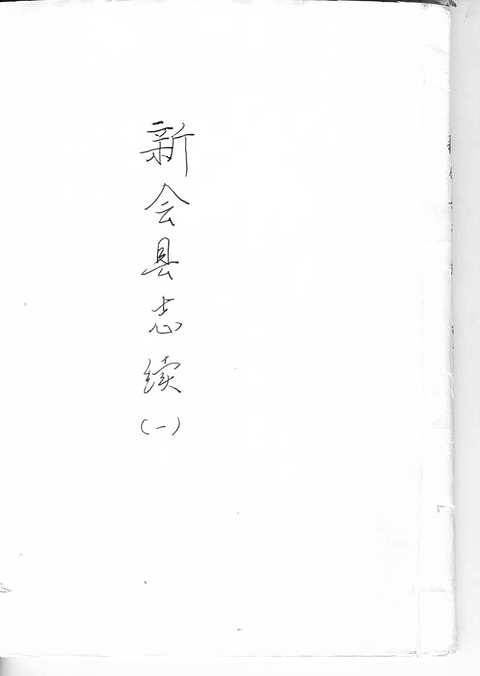 新会县志续(一)